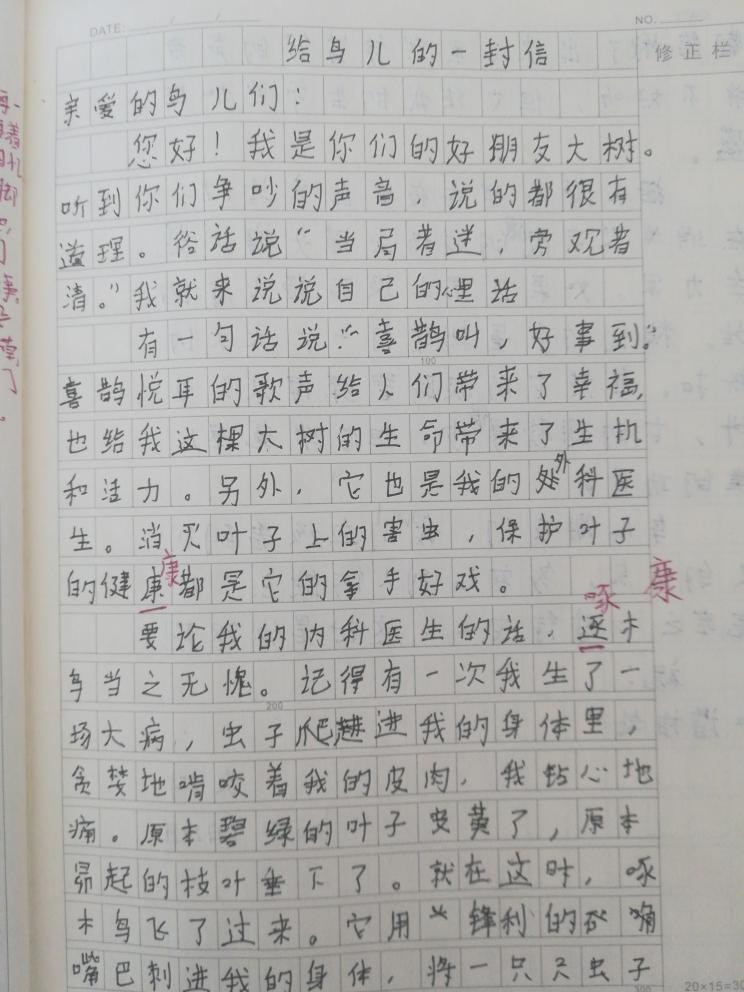 DATE:
NO.
给鸟儿的一封信
修正栏
亲爱的鸟儿们：
您好！我是你们的好朋友大树。
听到你们争吵的声音，说的都很有
道理。俗话说“当局者迷，旁观者
清。”我就来说说自己的心里话
有一句话说：“喜鹊叫，好事到。”
100
喜鹊悦耳的歌声给人们带来了幸福，
也给我这棵大树的生命带来了生机
和活力。另外，它也是我的外科医
生。消灭叶子上的害虫，保护叶子
的健康都是它的拿手好戏。
康
啄
康
要论我的内科医生的话，逐木
鸟当之无愧。记得有一次我生了一
200
场大病，虫子爬进我的身体里，
贪婪地啃咬着我的皮肉，我钻心地
痛。原本碧绿的叶子变黄了，原本
昂起的枝叶垂下了。就在这时，啄
木鸟飞了过来。它用锋利的
嘴巴刺进我的身体，将一只只虫子
300
20×15=30